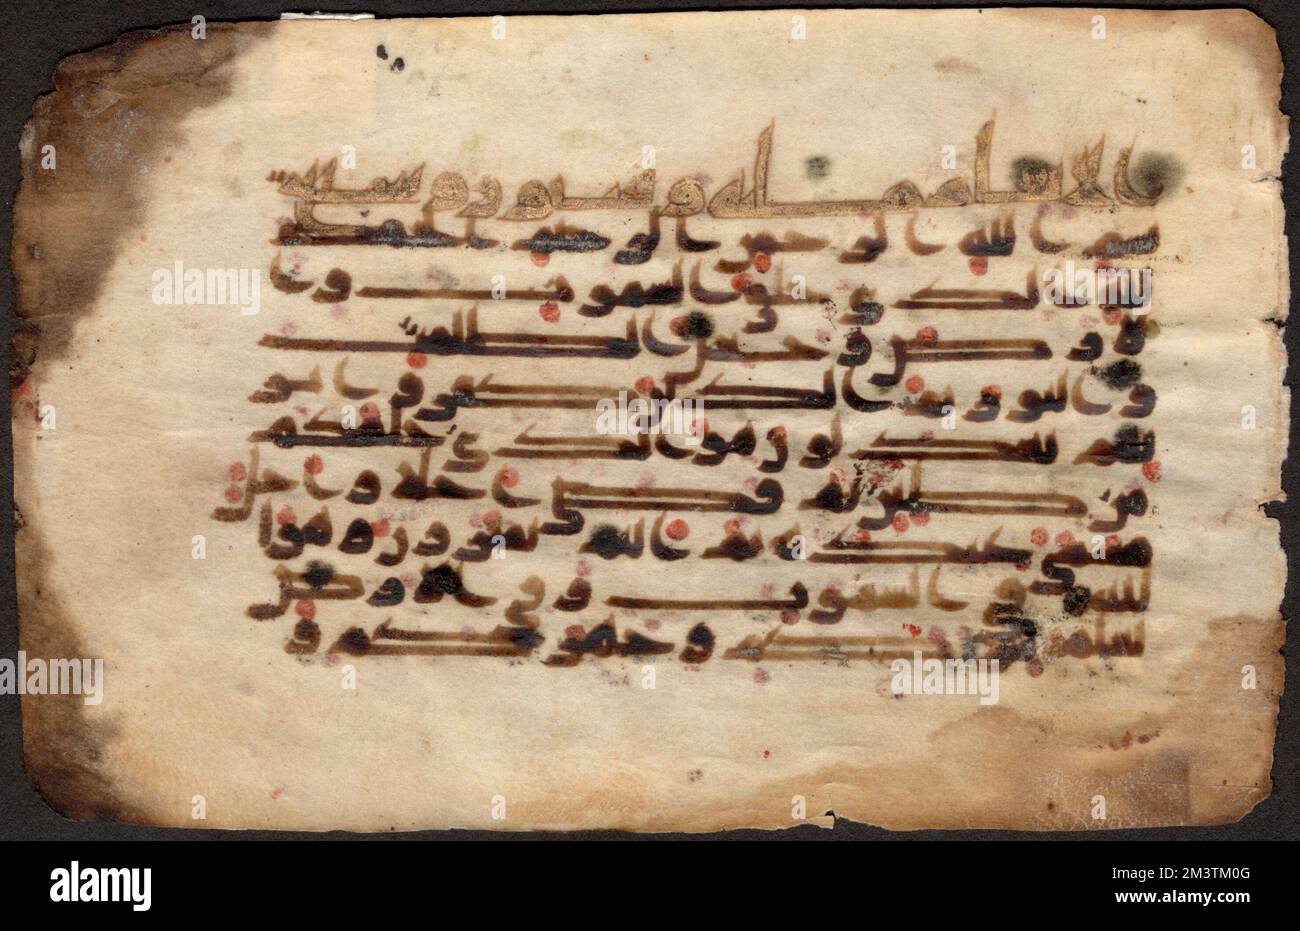 الانعام مايه وستون وست
بسم الله الرحمن الرحيم الحمد
لله الذي خلق السموت وا
لارض وجعل الظلمت
والنور ثم الذين كفروا بر
بهم يعدلون هو الذي خلقكم
من طين ثم قضى اجلا واجل
مسمى عنده ثم انتم تمترون وهو ا
لله في السموت وفي الارض
يعلم سركم وجهركم و
alamy
Image ID: 2M3TM0G
www.alamy.com